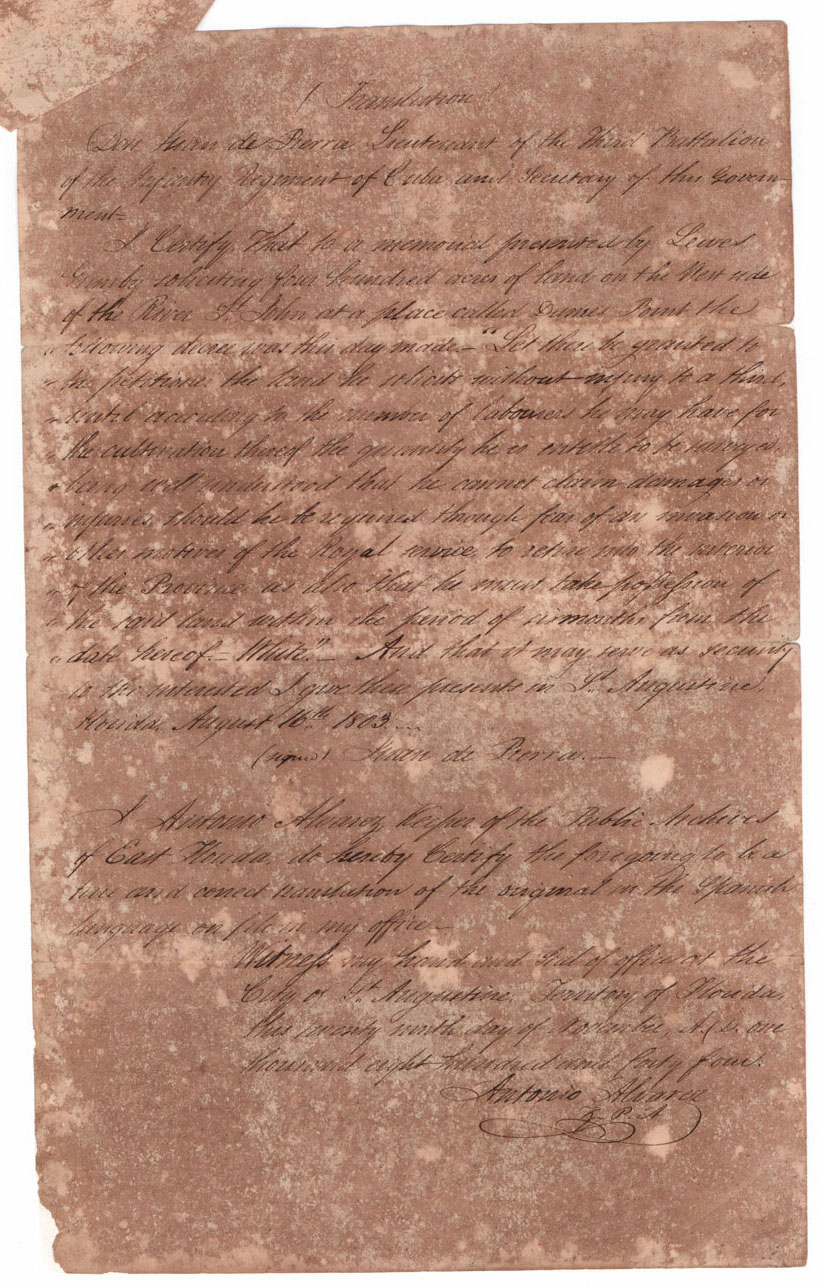 (Translation)
Don Juan de Pierra Lieutenant of the Third Battalion
of the Infantry Regiment of Cuba and Secretary of this Govern-
ment-
I Certify, That to a memorial presented by Lewes
soliciting four hundred acres of land on the West side
of the River St. John at a place called Point the
following decree was this day made.- "Let there be granted to
" the petitioner the land he solicits without injury to a third,
" until according to the number of labourers he may have for
" the cultivation thereof the quantity he is entitled to be surveyed
" being well understood that he cannot claim damages or
" injuries, should he be required through fear of an invasion or
" other motives of the Royal service to retire into the interior
" of the Province as also that he must take possession of
" the said land within the period of six months from the
" date hereof.- White."- And that it may serve as security
to the interested I give these presents in St. Augustine,
Florida, August 16th 1803.
(signed) Juan de Pierra.-
I Antonio Alvarez Keeper of the Public Archives
of East Florida, do hereby Certify the foregoing to be a
true and correct translation of the original in the Spanish
language on file in my office-
Witness my hand and Seal of office at the
City of St. Augustine, Territory of Florida,
this twenty ninth day of November, A.D. one
thousand eight hundred and forty four.
Antonio Alvarez
K. P. A